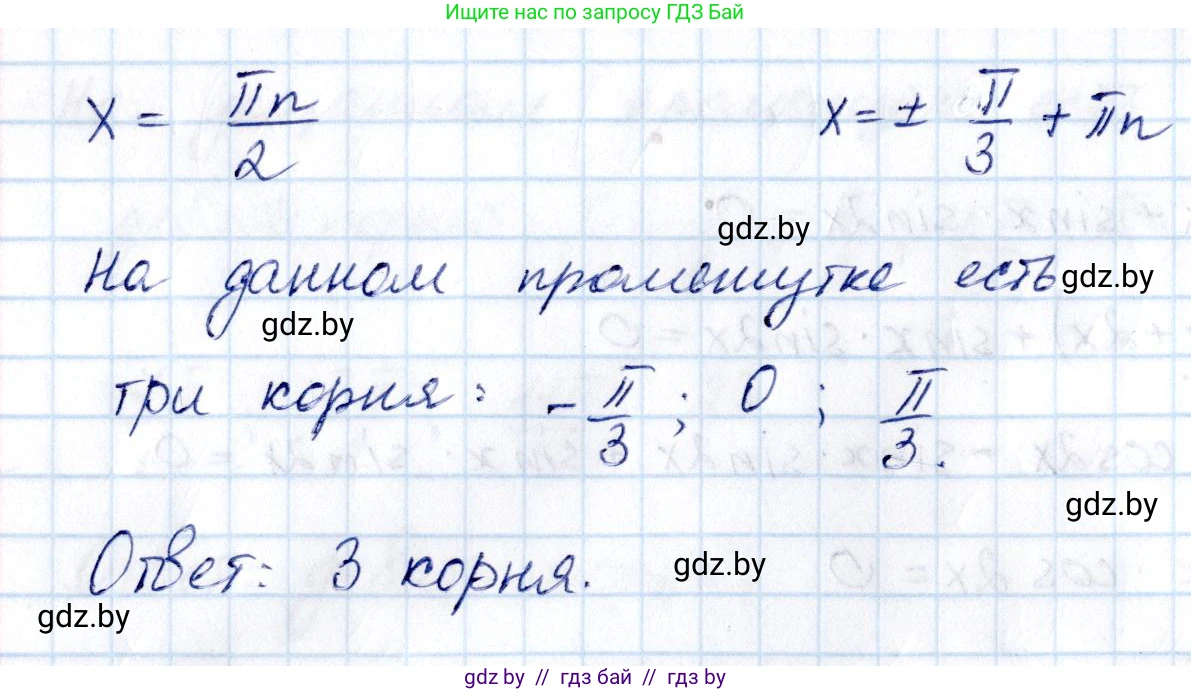 Ищите нас по запросу ГДЗ Бай
x = πn/2 x = ± π/3 + πn
gdz.by
На данном промежутке есть gdz.by
gdz.by
три корня: -π/3; 0; π/3.
gdz.by
Ответ: 3 корня. gdz.by
gdz.by
gdz.by // гдз бай // gdz.by